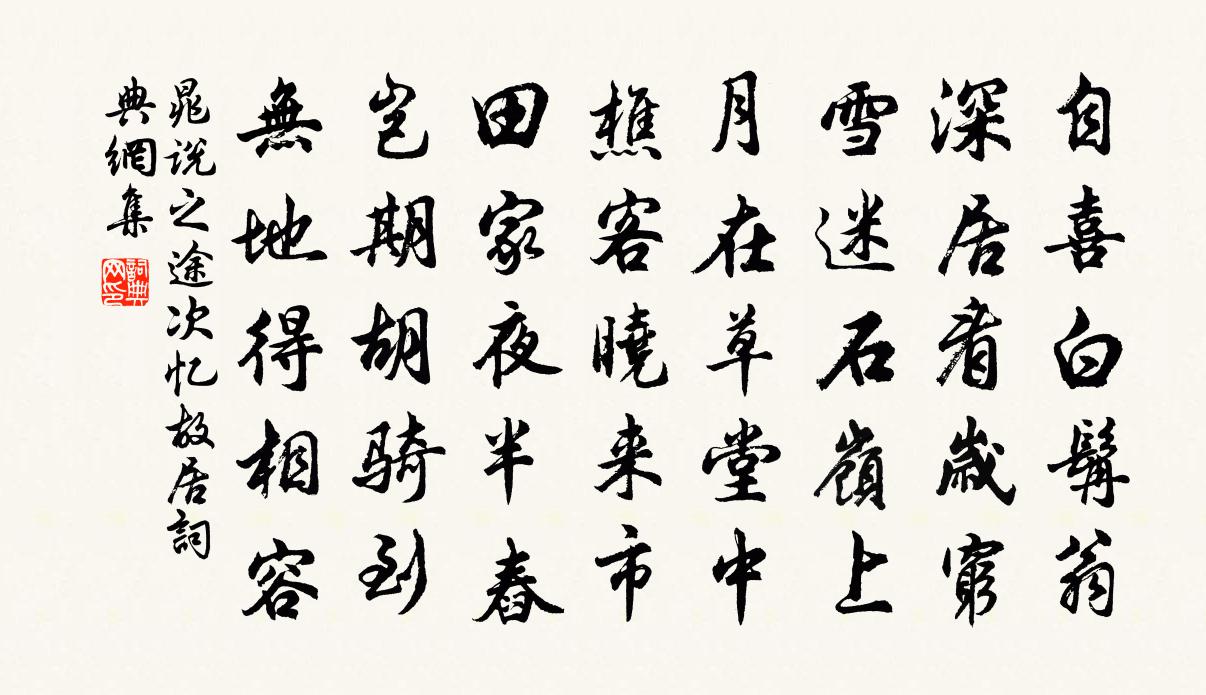 自喜白髯翁
深居看歲窮
雪迷石嶺上
月在草堂中
樵客曉来市
田家夜半舂
岂期胡骑到
無地得相容
晁说之途次忆故居詞
典網集
詞典
网印